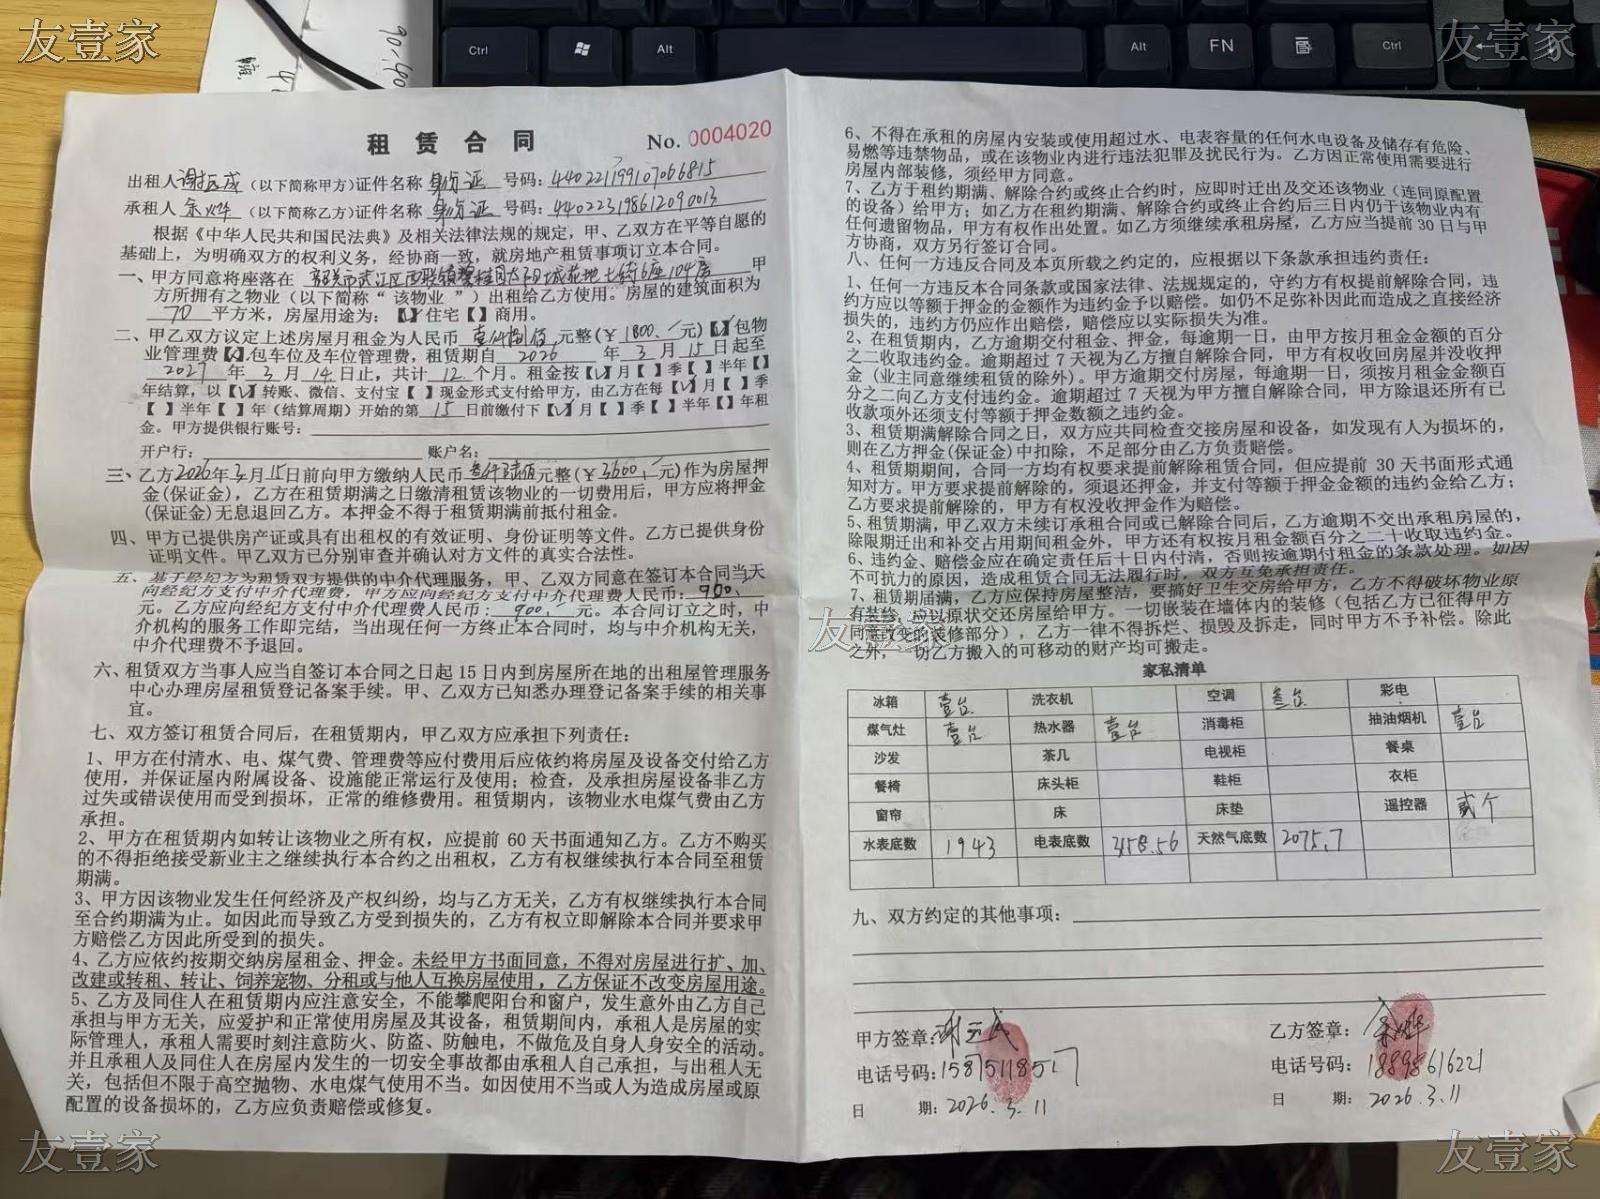 友壹家
友壹家
Ctrl
Alt
Alt
FN
Ctrl
租 赁 合 同 No. 0004020
出租人 （以下简称甲方）证件名称 身份证 号码：440221199107066815
承租人 余烨 （以下简称乙方）证件名称 身份证 号码：440223198612090013
根据《中华人民共和国民法典》及相关法律法规的规定，甲、乙双方在平等自愿的
基础上，为明确双方的权利义务，经协商一致，就房地产租赁事项订立本合同。
一、甲方同意将座落在 韶关市武江区西联镇碧桂园太阳城花地七街6座104房 甲
方所拥有之物业（以下简称“该物业”）出租给乙方使用。房屋的建筑面积为
70 平方米，房屋用途为：【√】住宅【 】商用。
二、甲乙双方议定上述房屋月租金为人民币 壹仟捌佰 元整(￥1800.-元)【√】包物
业管理费【√】包车位及车位管理费，租赁期自 2026 年 3 月 15 日起至
2027 年 3 月 14 日止，共计 12 个月。租金按【√】月【 】季【 】半年【 】
年结算，以【√】转账、微信、支付宝【 】现金形式支付给甲方，由乙方在每【√】月【 】季
【 】半年【 】年（结算周期）开始的第 15 日前缴付下【√】月【 】季【 】半年【 】年租
金。甲方提供银行账号：
开户行： 账户名：
三、乙方2026年3月15日前向甲方缴纳人民币 叁仟陆佰 元整(￥3600.-元)作为房屋押
金(保证金)，乙方在租赁期满之日缴清租赁该物业的一切费用后，甲方应将押金
(保证金)无息退回乙方。本押金不得于租赁期满前抵付租金。
四、甲方已提供房产证或具有出租权的有效证明、身份证明等文件。乙方已提供身份
证明文件。甲乙双方已分别审查并确认对方文件的真实合法性。
五、基于经纪方为租赁双方提供的中介代理服务，甲、乙双方同意在签订本合同当天
向经纪方支付中介代理费，甲方应向经纪方支付中介代理费人民币：900.
元。乙方应向经纪方支付中介代理费人民币：900.- 元。本合同订立之时，中
介机构的服务工作即完结，当出现任何一方终止本合同时，均与中介机构无关，
中介代理费不予退回。
六、租赁双方当事人应当自签订本合同之日起 15 日内到房屋所在地的出租屋管理服务
中心办理房屋租赁登记备案手续。甲、乙双方已知悉办理登记备案手续的相关事
宜。
七、双方签订租赁合同后，在租赁期内，甲乙双方应承担下列责任：
1、甲方在付清水、电、煤气费、管理费等应付费用后应依约将房屋及设备交付给乙方
使用，并保证屋内附属设备、设施能正常运行及使用；检查，及承担房屋设备非乙方
过失或错误使用而受到损坏，正常的维修费用。租赁期内，该物业水电煤气费由乙方
承担。
2、甲方在租赁期内如转让该物业之所有权，应提前 60 天书面通知乙方。乙方不购买
的不得拒绝接受新业主之继续执行本合约之出租权，乙方有权继续执行本合同至租赁
期满。
3、甲方因该物业发生任何经济及产权纠纷，均与乙方无关，乙方有权继续执行本合同
至合约期满为止。如因此而导致乙方受到损失的，乙方有权立即解除本合同并要求甲
方赔偿乙方因此所受到的损失。
4、乙方应依约按期交纳房屋租金、押金。未经甲方书面同意，不得对房屋进行扩、加、
改建或转租、转让、饲养宠物、分租或与他人互换房屋使用，乙方保证不改变房屋用途。
5、乙方及同住人在租赁期内应注意安全，不能攀爬阳台和窗户，发生意外由乙方自己
承担与甲方无关，应爱护和正常使用房屋及其设备，租赁期间内，承租人是房屋的实
际管理人，承租人需要时刻注意防火、防盗、防触电，不做危及自身人身安全的活动。
并且承租人及同住人在房屋内发生的一切安全事故都由承租人自己承担，与出租人无
关，包括但不限于高空抛物、水电煤气使用不当。如因使用不当或人为造成房屋或原
配置的设备损坏的，乙方应负责赔偿或修复。
6、不得在承租的房屋内安装或使用超过水、电表容量的任何水电设备及储存有危险、
易燃等违禁物品，或在该物业内进行违法犯罪及扰民行为。乙方因正常使用需要进行
房屋内部装修，须经甲方同意。
7、乙方于租约期满、解除合约或终止合约时，应即时迁出及交还该物业（连同原配置
的设备）给甲方；如乙方在租约期满、解除合约或终止合约后三日内仍于该物业内有
任何遗留物品，甲方有权作出处置。如乙方须继续承租房屋，乙方应当提前 30 日与甲
方协商，双方另行签订合同。
八、任何一方违反合同及本页所载之约定的，应根据以下条款承担违约责任：
1、任何一方违反本合同条款或国家法律、法规规定的，守约方有权提前解除合同，违
约方应以等额于押金的金额作为违约金予以赔偿。如仍不足弥补因此而造成之直接经济
损失的，违约方仍应作出赔偿，赔偿应以实际损失为准。
2、在租赁期内，乙方逾期交付租金、押金，每逾期一日，由甲方按月租金金额的百分
之二收取违约金。逾期超过 7 天视为乙方擅自解除合同，甲方有权收回房屋并没收押
金（业主同意继续租赁的除外）。甲方逾期交付房屋，每逾期一日，须按月租金金额百
分之二向乙方支付违约金。逾期超过 7 天视为甲方擅自解除合同，甲方除退还所有已
收款项外还须支付等额于押金数额之违约金。
3、租赁期满解除合同之日，双方应共同检查交接房屋和设备，如发现有人为损坏的，
则在乙方押金(保证金)中扣除，不足部分由乙方负责赔偿。
4、租赁期期间，合同一方均有权要求提前解除租赁合同，但应提前 30 天书面形式通
知对方。甲方要求提前解除的，须退还押金，并支付等额于押金金额的违约金给乙方；
乙方要求提前解除的，甲方有权没收押金作为赔偿。
5、租赁期满，甲乙双方未续订承租合同或已解除合同后，乙方逾期不交出承租房屋的，
除限期迁出和补交占用期间租金外，甲方还有权按月租金额百分之二十收取违约金。
6、违约金、赔偿金应在确定责任后十日内付清，否则按逾期付租金的条款处理。如因
不可抗力的原因，造成租赁合同无法履行时，双方互免承担责任。
7、租赁期届满，乙方应保持房屋整洁，要搞好卫生交房给甲方，乙方不得破坏物业原
有装修，应以原状交还房屋给甲方。一切嵌装在墙体内的装修（包括乙方已征得甲方
同意改变的装修部分），乙方一律不得拆烂、损毁及拆走，同时甲方不予补偿。除此
之外，一切乙方搬入的可移动的财产均可搬走。
友壹家
家私清单
冰箱 壹台 洗衣机 空调 叁台 彩电
煤气灶 壹台 热水器 壹台 消毒柜 抽油烟机 壹台
沙发 茶几 电视柜 餐桌
餐椅 床头柜 鞋柜 衣柜
窗帘 床 床垫 遥控器 贰个
水表底数 1943 电表底数 3158.56 天然气底数 2075.7
九、双方约定的其他事项：
甲方签章： 乙方签章：余烨
电话号码：15875118517 电话号码：18898616221
日 期：2026.3.11 日 期：2026.3.11
友壹家
友壹家